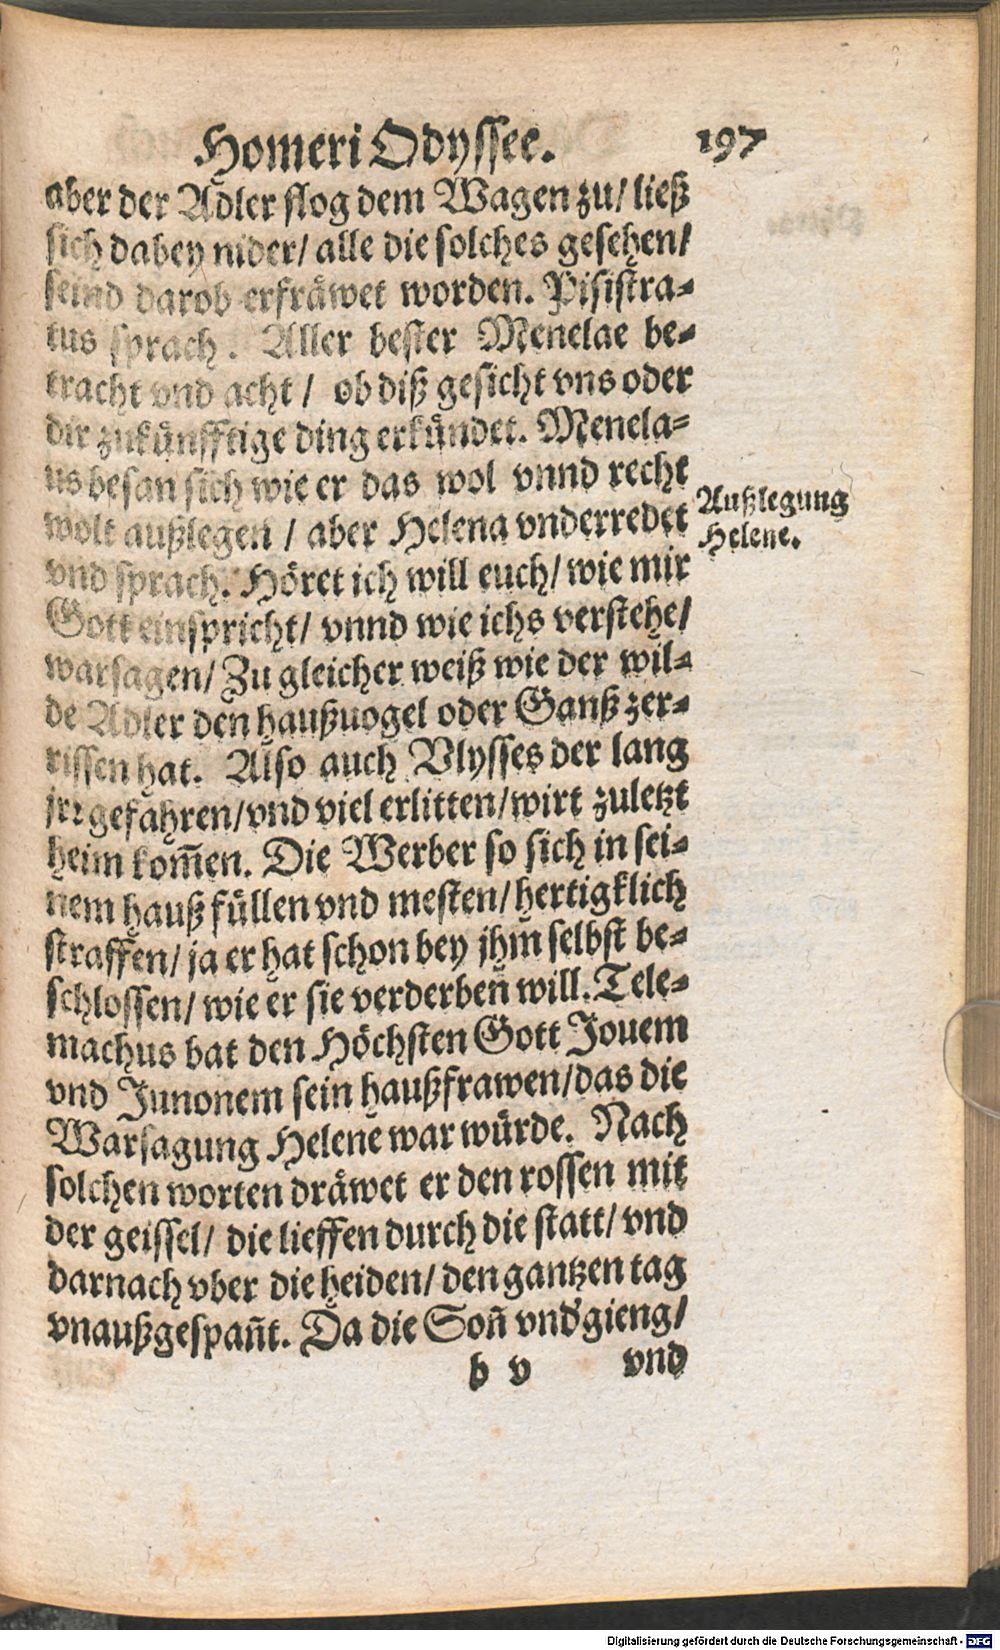 Homeri Odyssee. 197
aber der Adler flog dem Wagen zu/ ließ
sich dabey nider/ alle die solches gesehen/
seind darob erfräwet worden. Pisistra-
tus sprach. Aller bester Menelae be-
tracht vnd acht/ ob diß gesicht vns oder
dir zukünfftige ding erkündet. Menela-
us besan sich wie er das wol vnnd recht
wolt außlegen / aber Helena vnderredet
Außlegung
Helene.
vnd sprach. Höret ich will euch/ wie mir
Gott einspricht/ vnnd wie ichs verstehe/
warsagen/ Zu gleicher weiß wie der wil-
de Adler den haußuogel oder Ganß zer-
rissen hat. Also auch Vlysses der lang
jrr gefahren/ vnd viel erlitten/ wirt zuletzt
heim kom̃en. Die Werber so sich in sei-
nem hauß füllen vnd mesten/ hertigklich
straffen/ ja er hat schon bey jhm selbst be-
schlossen/ wie er sie verderben will. Tele-
machus bat den Höchsten Gott Jouem
vnd Junonem sein haußfrawen/ das die
Warsagung Helene war würde. Nach
solchen worten dräwet er den rossen mit
der geissel/ die lieffen durch die statt/ vnd
darnach vber die heiden/ den gantzen tag
vnaußgespañt. Da die Soñ vnd'gieng/
b v vnd
Digitalisierung gefördert durch die Deutsche Forschungsgemeinschaft - DFG